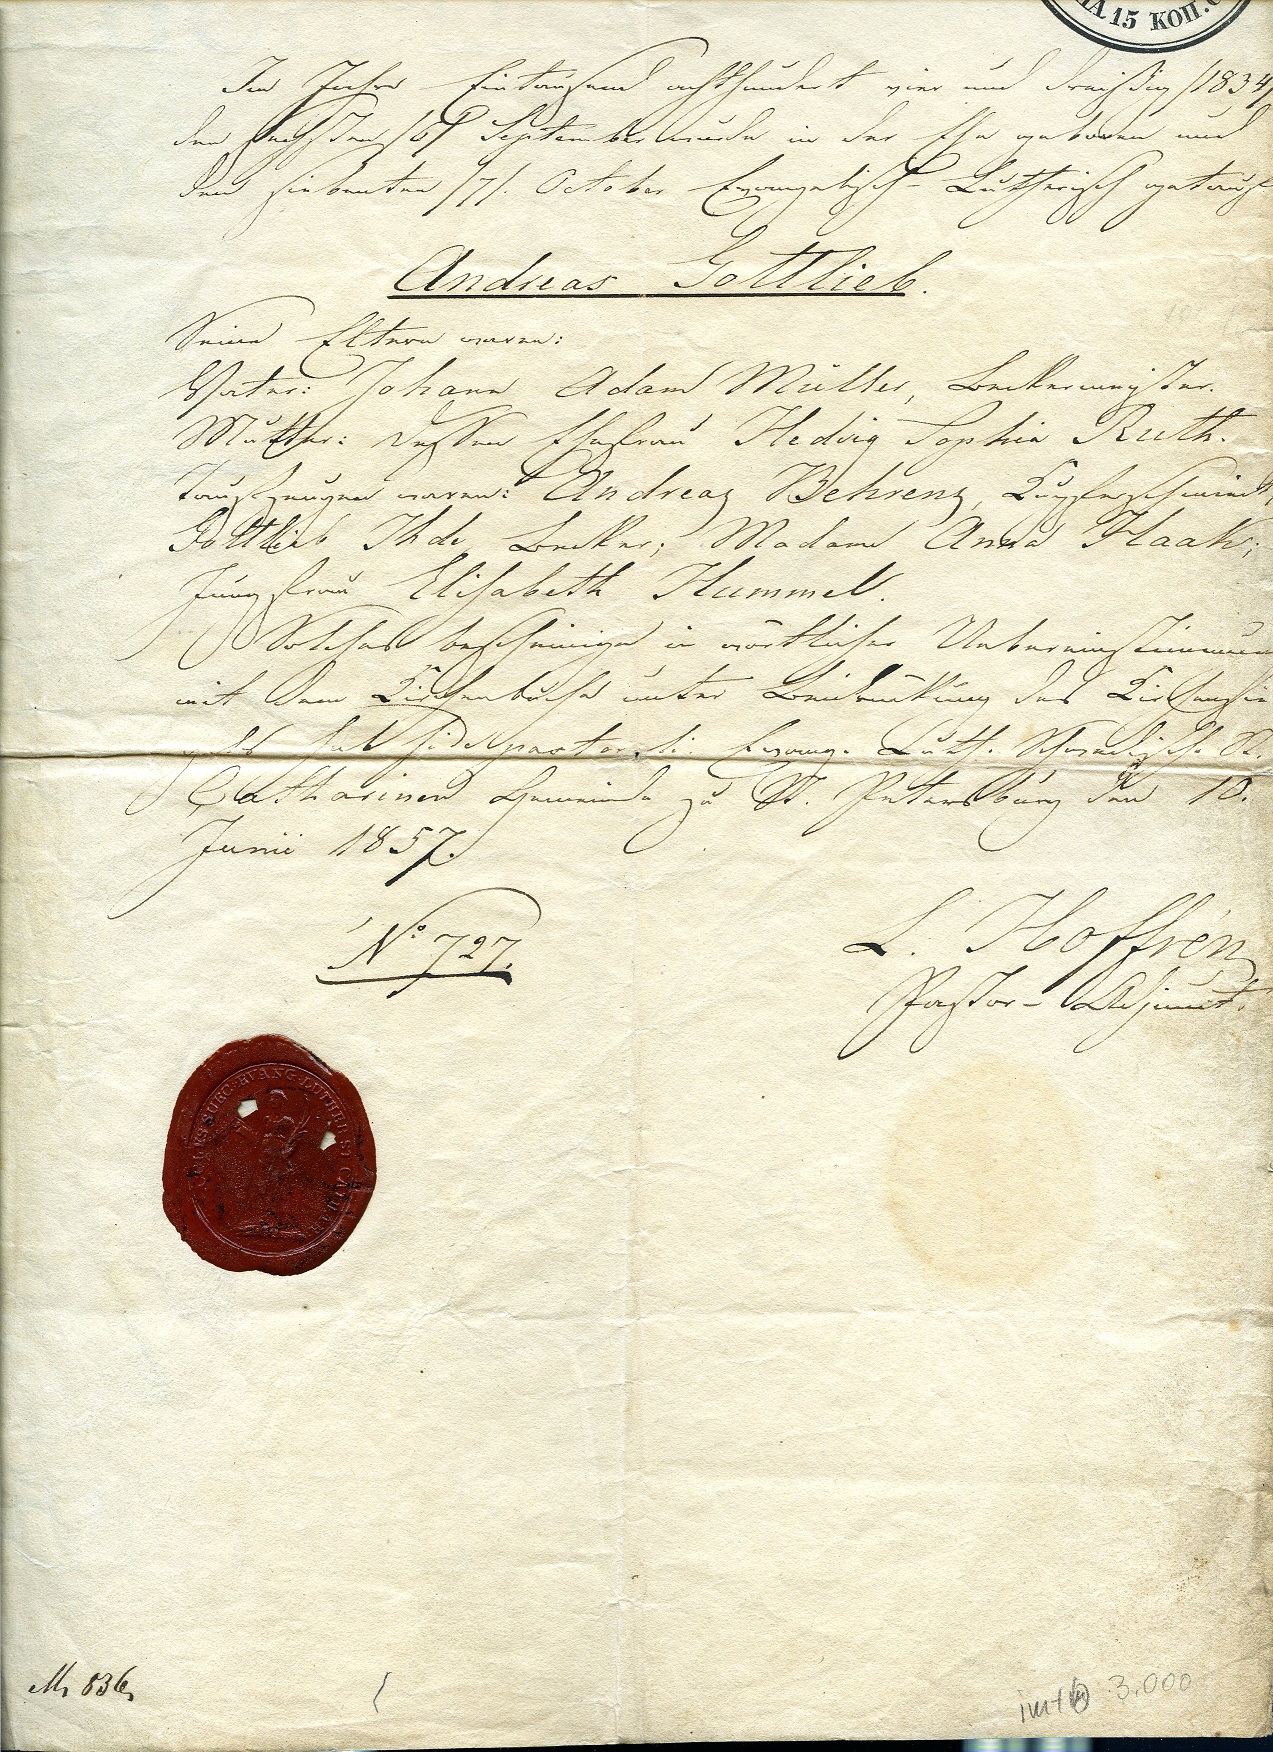 ЦѢНА 15 КОП. С
Im Jahre Eintausend achthundert vier und dreißig /1834/
den sechsten /6/ September wurde in der Ehe geboren und
den siebenten /7/. October Evangelisch-Lutherisch getauft
Andreas Gottlieb.
Seine Eltern waren:
Vater: Johann Adam Müller, Beckermeister.
Mutter: dessen Ehefrau Hedvig Sophia Ruth.
Taufzeugen waren: Andreas Behrens, Kupferschmiedt,
Gottlieb Ihde, Becker; Madame Anna Haak;
Jungfrau Elisabeth Hummel.
Solches bescheinige in wörtlicher Uebereinstimmung
mit dem Kirchenbuche unter Beidrückung des Kirchensie
gels sub fide pastorali. Evang. Luth. Schwedische St.
Catharinen Gemeinde zu St. Petersburg den 10.
Junii 1857.
No. 727.
L. Hoffrén
Pastor-Adjunct.
EVANG. LUTHER. S. CATH
M 836
3.000